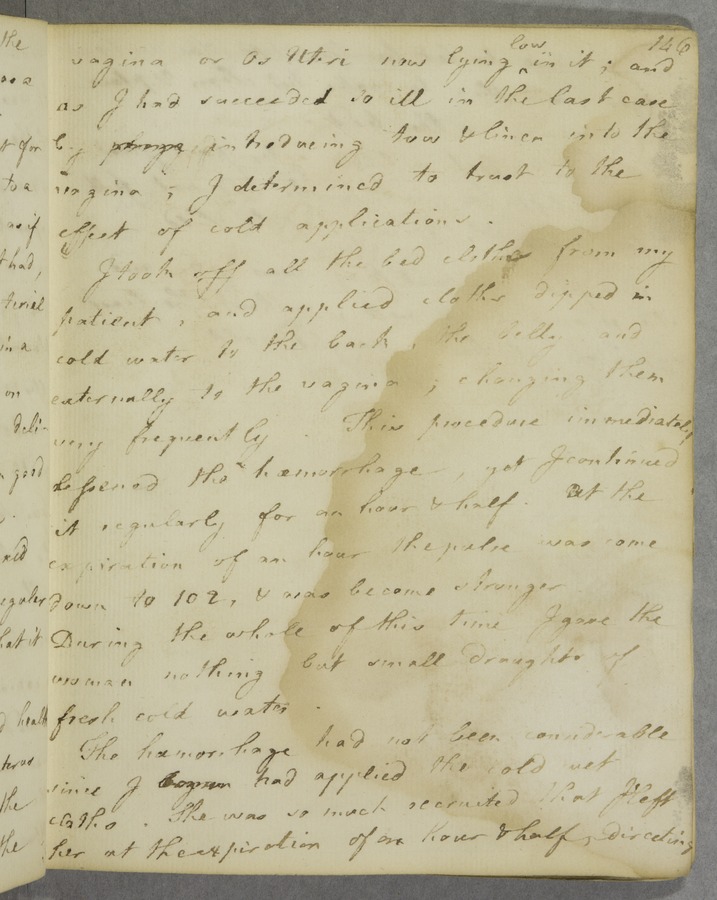 146
vagina or Os Uteri now lying low in it; and
as I had succeeded so ill in the last case
by introducing tow & linen into the
vagina; I determined to trust to the
effect of cold applications.
I took off all the bed clothes from my
patient, and applied cloths dipped in
cold water to the back, the belly and
externally to the vagina; changing them
very frequently. This procedure immediately
lessened the hæmorrhage, yet I continued
it regularly for an hour & half. At the
expiration of an hour the pulse was come
down to 102, & was become stronger
During the whole of this time I gave the
woman nothing but small draughts of
fresh cold water.
The hæmorrhage had not been considerable
since I began had applied the cold wet
cloths. She was so much recruited that I left
her at the expiration of an hour & half, directing
the
for
to a
as if
had,
in a
on
deli-
good
the
the